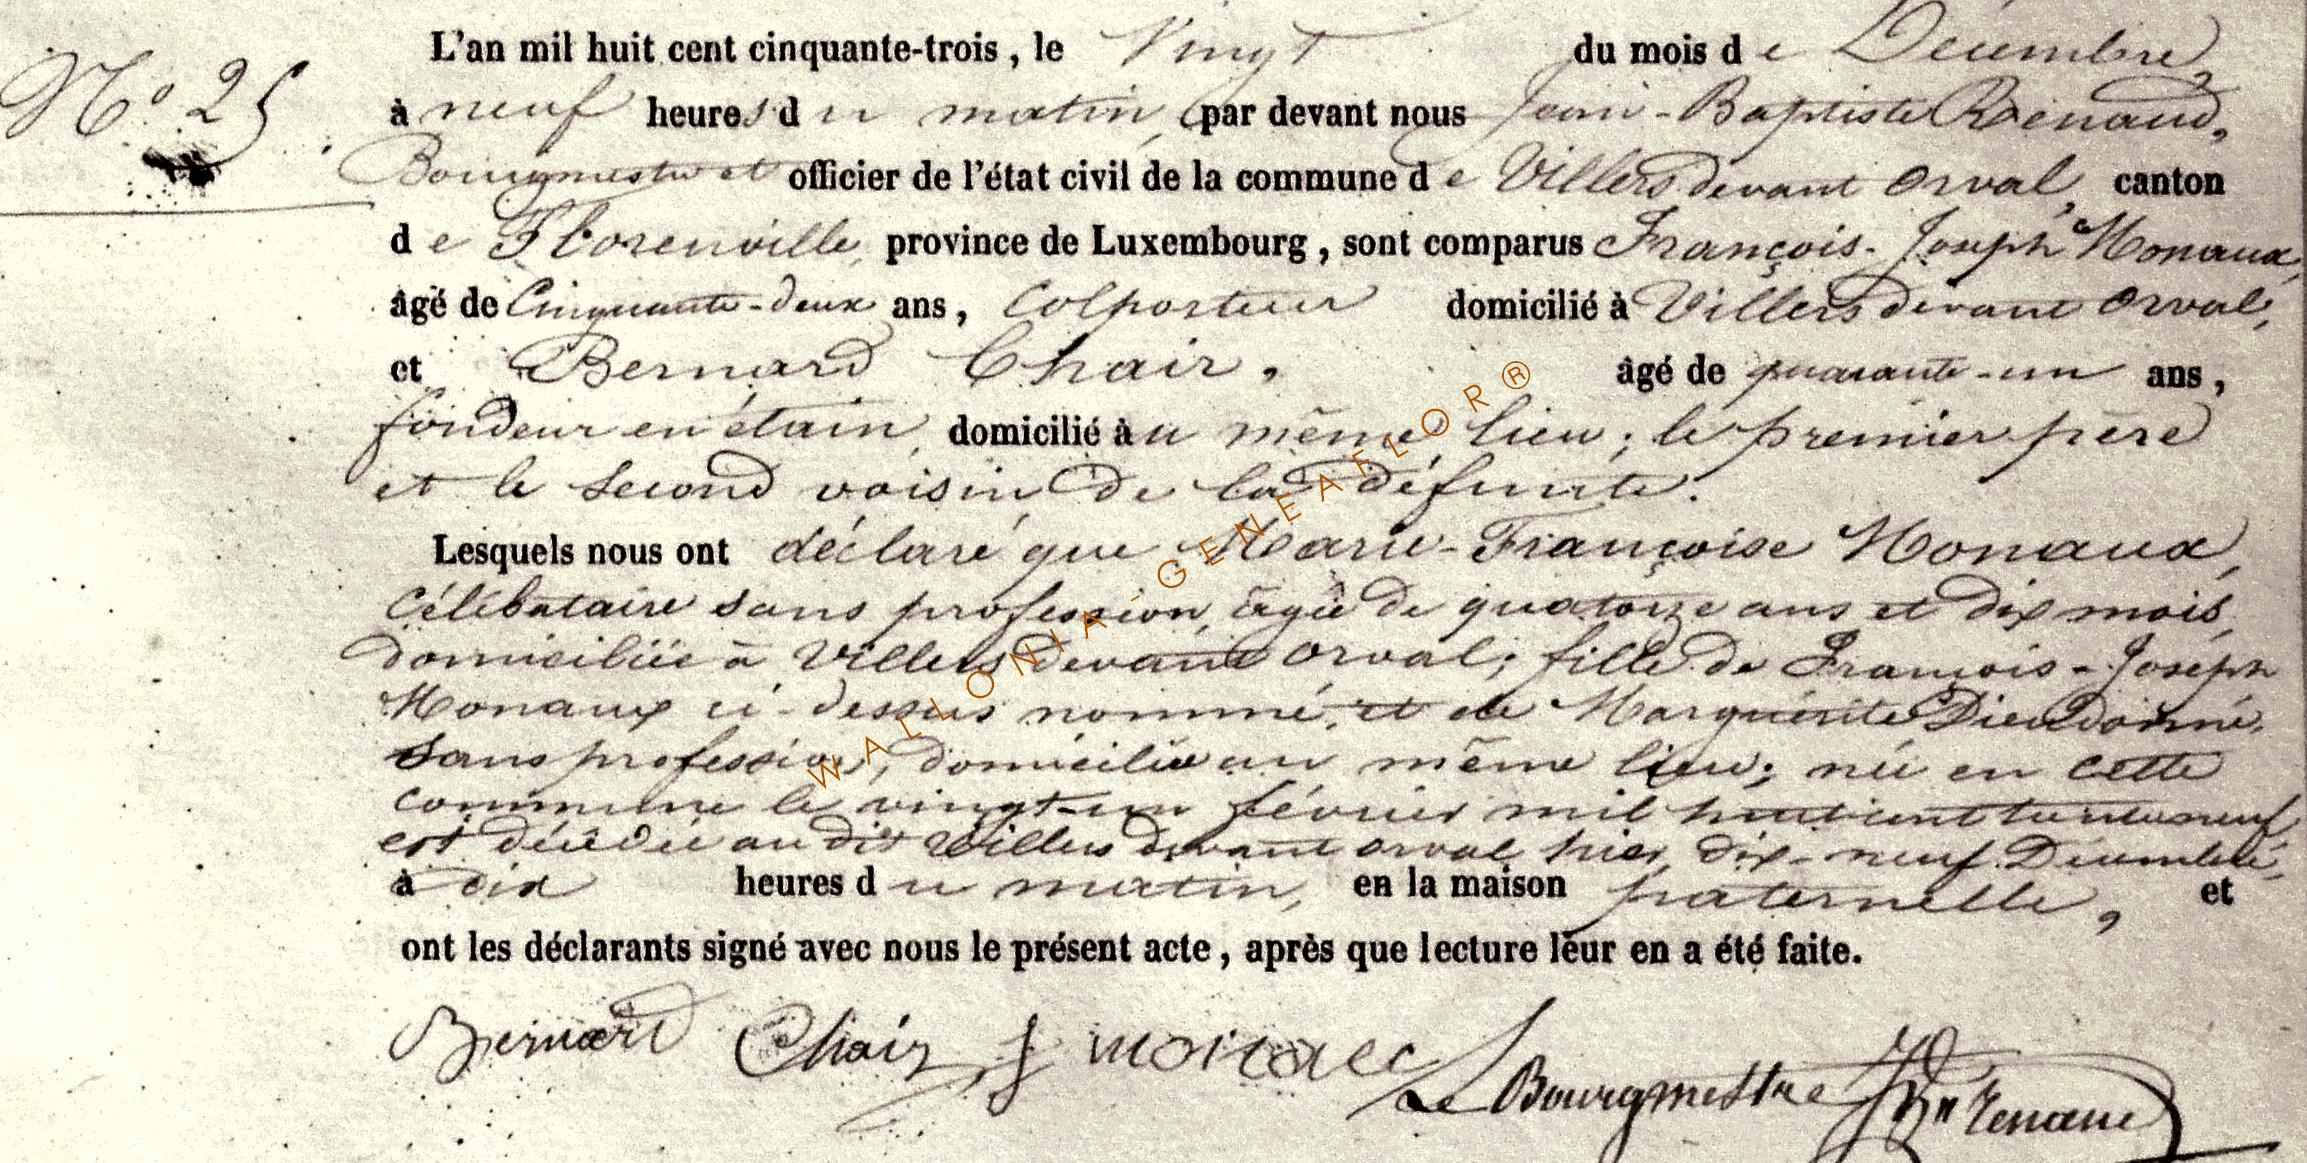 N° 25
L'an mil huit cent cinquante-trois, le Vingt du mois de Décembre,
à neuf heures du matin, par devant nous Jean-Baptiste Renaud,
Bourgmestre et officier de l'état civil de la commune de Villers devant Orval, canton
de Florenville, province de Luxembourg, sont comparus François-Joseph Monaux,
âgé de Cinquante-deux ans, Colporteur domicilié à Villers devant Orval,
et Bernard Chair, âgé de quarante-un ans,
fondeur en étain, domicilié au même lieu; le premier père
et le second voisin de la défunte.
Lesquels nous ont déclaré que Marie-Françoise Monaux,
Célibataire sans profession, âgée de quatorze ans et dix mois,
domiciliée à Villers devant Orval; fille de François-Joseph
Monaux ci-dessus nommé, et de Marguerite Dieudonné,
sans profession, domiciliée au même lieu; née en cette
commune le vingt-un février mil huit cent trente neuf
est décédée au dit Villers devant Orval hier, dix-neuf Décembre,
à dix heures du matin, en la maison paternelle, et
ont les déclarants signé avec nous le présent acte, après que lecture leur en a été faite.
Bernard Chair f monaec Le Bourgmestre JBn Renaud
WALLONIA-GENEAFLOR®